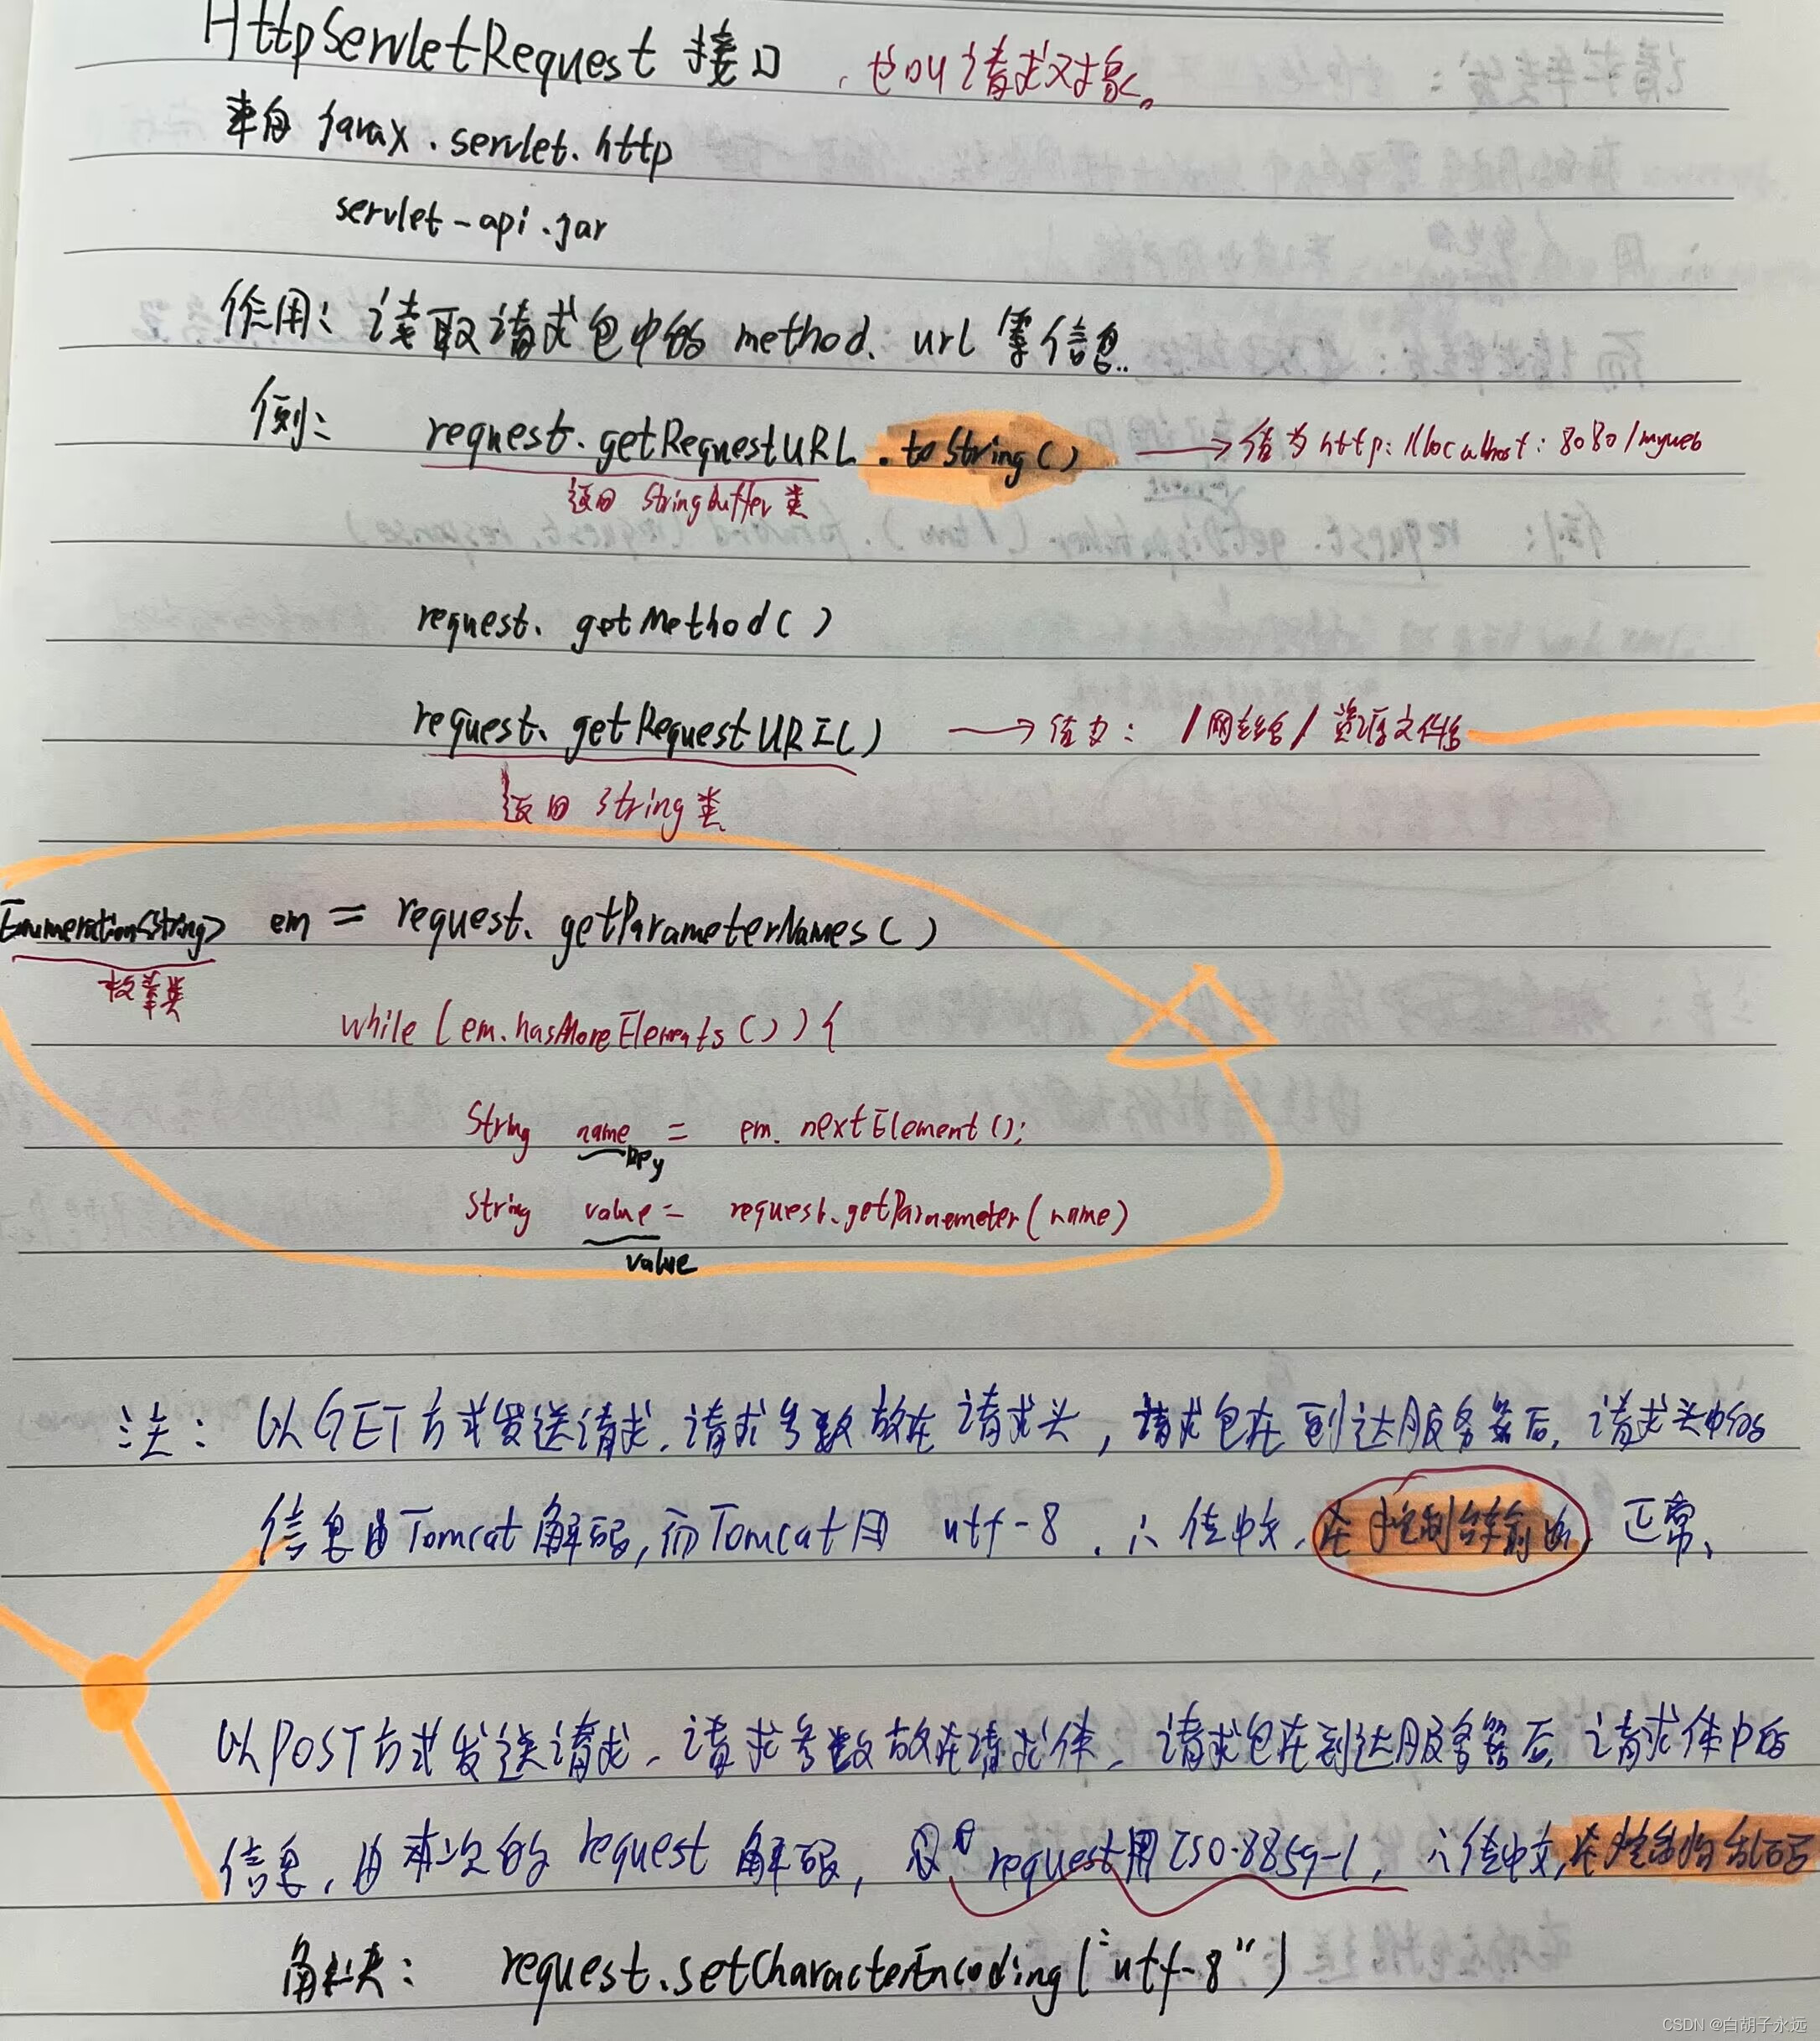 HttpServletRequest 接口，也叫请求对象。
来自 javax.servlet.http
servlet-api.jar
作用：读取请求包中的 method、url 等信息..
例： request.getRequestURL.toString() → 值为 http://localhost:8080/myweb
返回 StringBuffer 类
request. getMethod()
request. getRequestURI() → 值为： /网站名/资源文件名
返回 String 类
Enumeration<String> em = request. getParameterNames()
枚举类
while (em.hasMoreElements()) {
String name = em. nextElement();
key
String value = request.getParnemeter(name)
value
注： 以GET方式发送请求，请求参数放在请求头，请求包在到达服务器后，请求头中的
信息由Tomcat解码，而Tomcat用 utf-8 ，∴值中文，在控制台输出，正常、
以POST方式发送请求、请求参数放在请求体、请求包在到达服务器后，请求体中的
信息，由本次的 request 解码， request用ISO-8859-1，∴值中文，在 乱码
解决： request.setCharacterEncoding("utf-8")
CSDN @白胡子永远